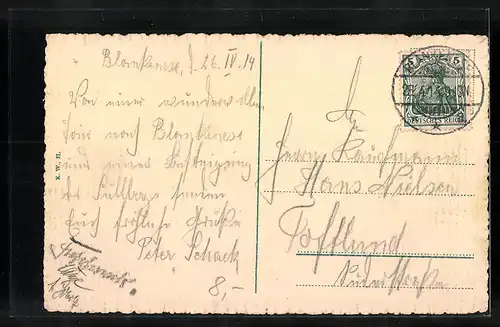 Blankenese, d. 26. IV. 14
Von einer wundervollen
Tour nach Blankenese
und einer Besteigung
des Süllbergs senden
Euch fröhliche Grüße
Peter Schack
8,-
K. W. H.
5 5
DEUTSCHES REICH
An
Herrn Kaufmann
Hans Nielsen
Toftlund
Süderstraße